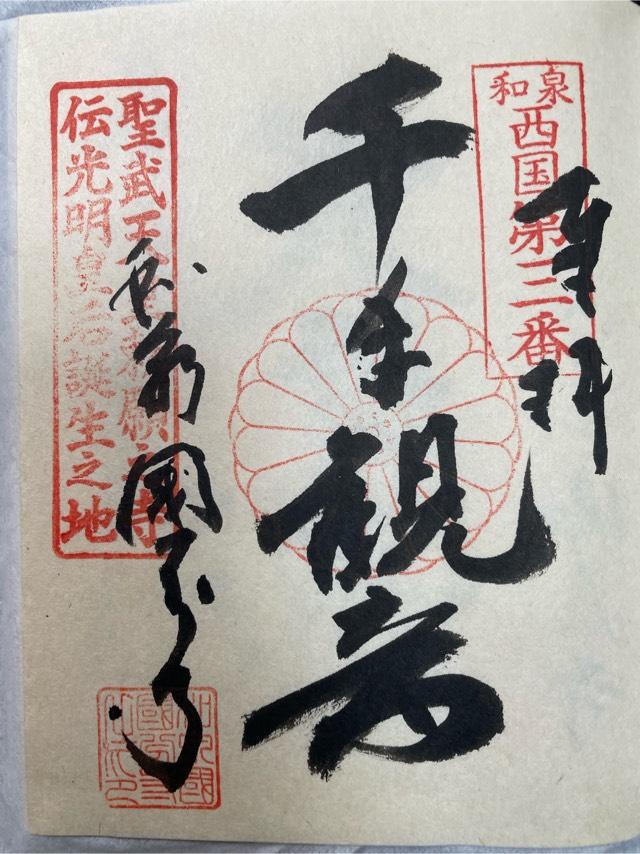 奉拝
和泉
西国第三番
千手観音
聖武天皇勅願之寺
伝光明皇后誕生之地
國分寺